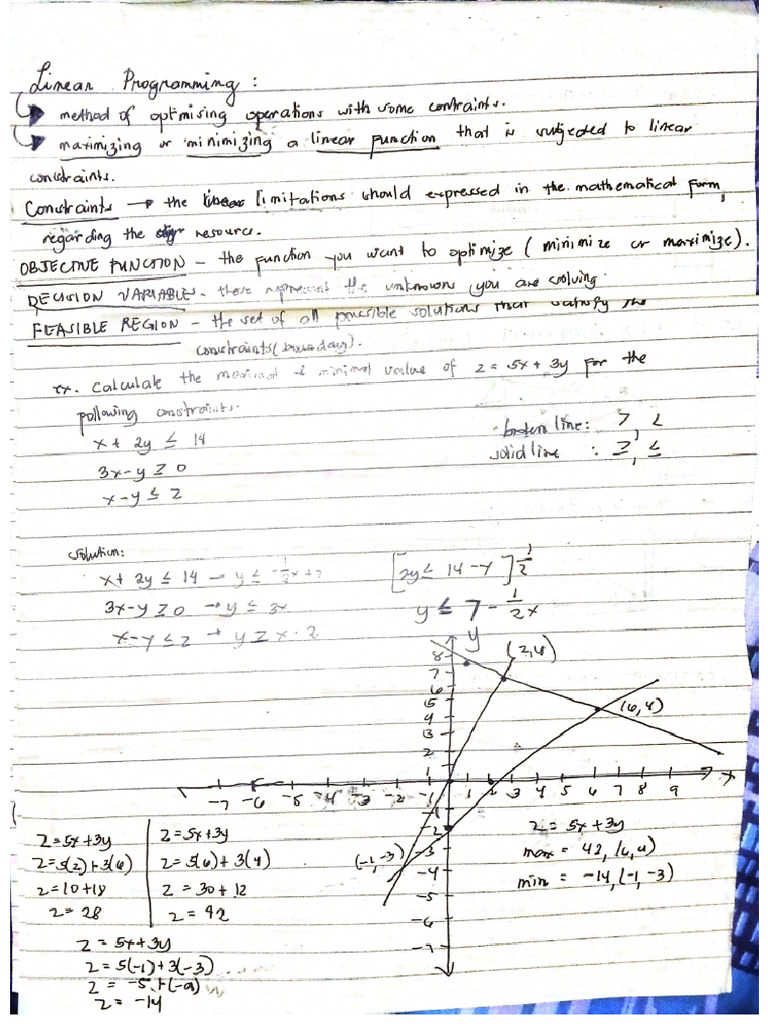 Linear Programming :
method of optimising operations with some contraints.
maximizing or minimizing a linear function that is subjected to linear
constraints.
Constraints → the limitations should expressed in the mathematical form,
regarding the resource.
OBJECTIVE FUNCTION - the function you want to optimize ( minimize or maximize).
DECISION VARIABLES - these represent the unknowns you are solving.
FEASIBLE REGION - the set of all possible solutions that satisfy the
constraints (boundary).
ex. Calculate the maximal & minimal value of z = 5x + 3y for the
following constraints.
x + 2y ≤ 14
3x - y ≥ 0
x - y ≤ 2
broken line: >, <
solid line : ≥, ≤
solution:
x + 2y ≤ 14 → y ≤ -1/2x + 7
3x - y ≥ 0 → y ≤ 3x
x - y ≤ 2 → y ≥ x - 2
[2y ≤ 14 - x] 1/2
y ≤ 7 - 1/2x
y
(2,6)
(6,4)
8
7
6
5
4
3
2
1
-7 -6 -5 -4 -3 -2 -1 1 2 3 4 5 6 7 8 9 x
-1
-2
-3
-4
-5
-6
-7
(-1,-3)
z = 5x + 3y
z = 5(2) + 3(6)
z = 10 + 18
z = 28
z = 5x + 3y
z = 5(6) + 3(4)
z = 30 + 12
z = 42
z = 5x + 3y
z = 5(-1) + 3(-3)
z = -5 + (-9)
z = -14
z = 5x + 3y
max = 42, (6,4)
min = -14, (-1, -3)